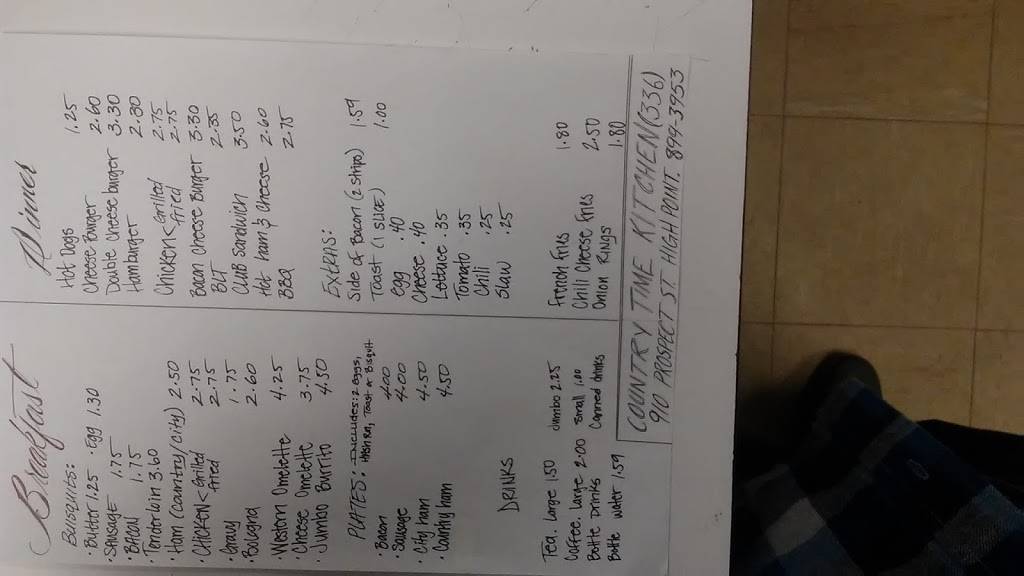 Breakfast
BUISQUITS:
• Butter 1.25 • Egg 1.30
• SAUSAGE 1.75
• BACON 1.75
• Tenderloin 3.60
• Ham (Country/City) 2.50
• CHICKEN < Grilled 2.75
fried 2.75
• Gravy 1.75
• Bologna 2.60
• Western Omelette 4.25
• Cheese Omelette 3.75
• Jumbo Burrito 4.50
PLATES: Includes: 2 eggs,
Toast or Bisquit
• Bacon 4.00
• Sausage 4.00
• City ham 4.50
• Country ham 4.50
DRINKS
Tea, Large 1.50 Jumbo 2.25
Coffee, Large 2.00 Small 1.00
Bottle Drinks Canned drinks
Bottle water 1.59
Dinner
Hot Dogs 1.25
Cheese Burger 2.60
Double Cheese burger 3.30
Hamburger 2.30
Chicken < Grilled 2.75
fried 2.75
Bacon Cheese Burger 3.30
BLT 2.35
Club Sandwich 3.50
Hot ham & cheese 2.60
BBQ 2.75
EXTRAS:
Side of Bacon (2 strips) 1.59
Toast (1 SLICE) 1.00
egg .40
Cheese .40
Lettuce .35
Tomato .35
Chili .25
Slaw .25
French Fries 1.80
Chili Cheese Fries 2.50
Onion Rings 1.80
COUNTRY TIME KITCHEN (336)
910 PROSPECT ST. HIGH POINT. 899-3953